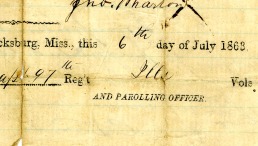 Jno. Wharton
cksburg, Miss., this 6th day of July 1863
Capt 97th Reg't Ills Vols
AND PAROLLING OFFICER.